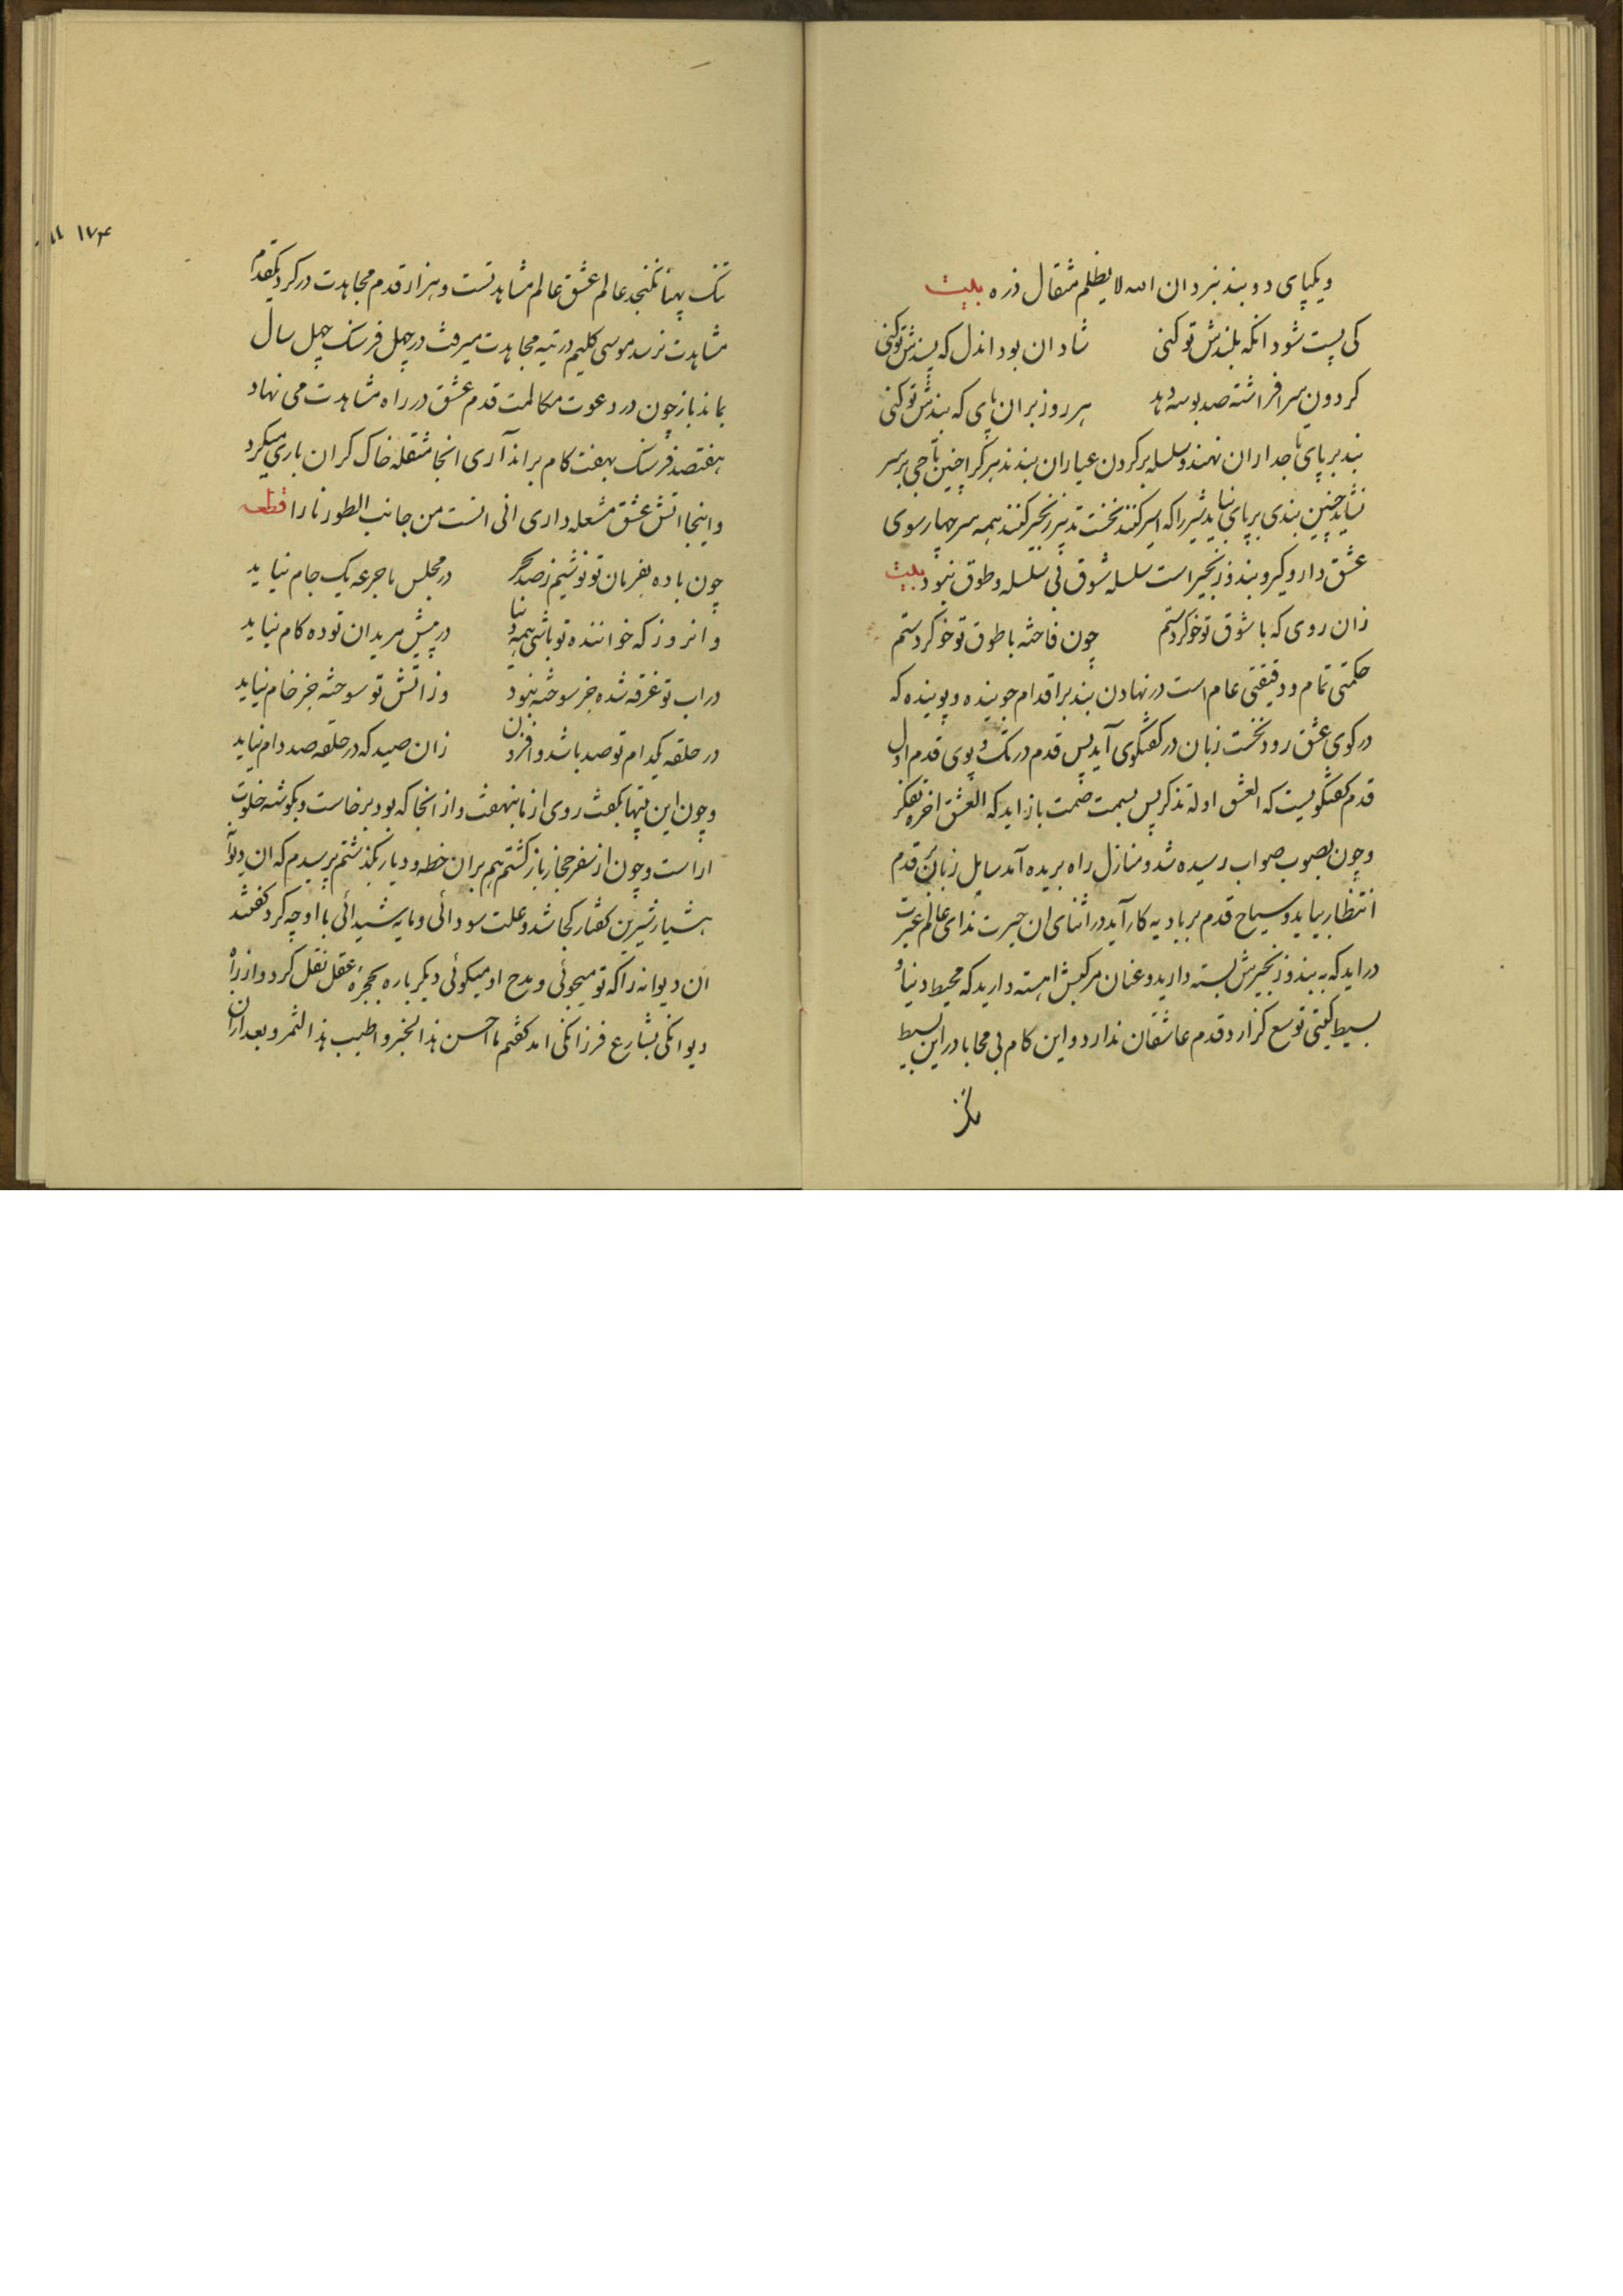 و یکپای دو بند نبرد ان الله لا یظلم مثقال ذره بیت
کی پست شود انکه بلندش تو کنی شادان بود اندل که پسندش تو کنی
کردون سر افراشته صد بوسه دهد هر روز بران پای که بندش تو کنی
بند بر پای تاجداران نهند و سلسله بر کردن عیاران بندند هر کرا چنین تاجی بر سر
نشاید چنین بندی بر پای نباید شیر را که اسیر کنند نخست تدبیر زنجیر کنند همه سر چهار سوی
عشق دار و گیر و بند و زنجیر است سلسله شوق بی سلسله و طوق نبود بیت
زان روی که با شوق تو خو کردستم چون فاخته با طوق تو خو کردستم
حکمتی تمام و دقیقتی عام است در نهادن بند بر اقدام جوینده و پوینده که
در کوی عشق رود نخست زبان در کفتکوی آید پس قدم در تک و پوی قدم اول
قدم کفتکویست که العشق اوله تذکر پس بسمت صمت باز اید که العشق اخره تفکر
و چون بصوب صواب رسیده شد و منازل راه بریده آمد سایل زبان بر قدم
انتظار بیاید و سیاح قدم بر بادیه کار آید در اثنای ان حیرت ندای عالم غیرت
در اید که به بند و زنجیرش بسته دارید و عنان مرکبش اهسته دارید که محیط دنیا و
بسیط کیتی توسع کزارد قدم عاشقان ندارد و این کام بی محابا در این بسیط
۱۷۴
تنک پهنا نکنجد عالم عشق عالم مشاهدتست و هزار قدم مجاهدت در کرد یکقدم
مشاهدت نرسد موسی کلیم در تیه مجاهدت میرفت در چهل فرسنک چهل سال
بماند باز چون در دعوت مکالمت قدم عشق در راه مشاهدت می نهاد
هفتصد فرسنک بهفت کام براند آری انجا مثقله خاک کران باری میکرد
و اینجا اتش عشق مشعله داری انی انست من جانب الطور نارا قطعه
چون باده بفرمان تو نوشیم ز صد بحر در مجلس ما جرعه یک جام نیاید
و انروز که خواننده تو باشی همه دنیا در پیش مریدان تو ده کام نیاید
در اب تو غرقه شده جز سوخته نبود وز اتش تو سوخته جز خام نیاید
در حلقه یکدام تو صد باشد و افزون زان صید که در حلقه صد دام نیاید
و چون این بیتها بکفت روی از ما بنهفت و از انجا که بود برخاست و بکوشه خلوت
اراست و چون از سفر حجاز باز کشتم هم بران خطه و دیار بکذشتم پرسیدم که ان دیوانه
هشیار شیرین کفتار کجا شد و علت سودائی و مایه شیدائی با او چه کرد کفتند
ان دیوانه را که تو میجوئی و مدح او میکوئی دیکر باره بحجره عقل نقل کرد و از راه
دیوانکی بشارع فرزانکی امد کفتم ما احسن هذا الخبر و اطیب هذا الثمر و بعد ازان